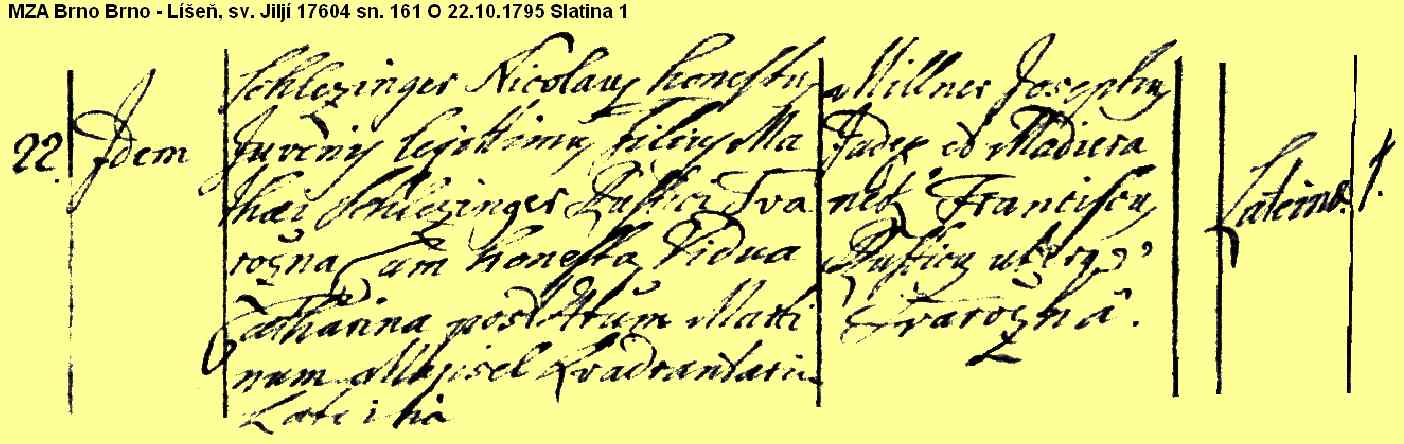 MZA Brno Brno - Líšeň, sv. Jiljí 17604 sn. 161 O 22.10.1795 Slatina 1
22. Idem
Schlezinger Nicolaus honestus
Juvenis legittimus Filius Ma
thaei Schlezinger Rustici Tva
rozna Cum honesta Vidua
Catharina post Mar
tinum Quadrantarium
Lateina
Millner Josephus
Judex et
Franciscus
Rusticus
Tvarozna.
Lateina. 1.